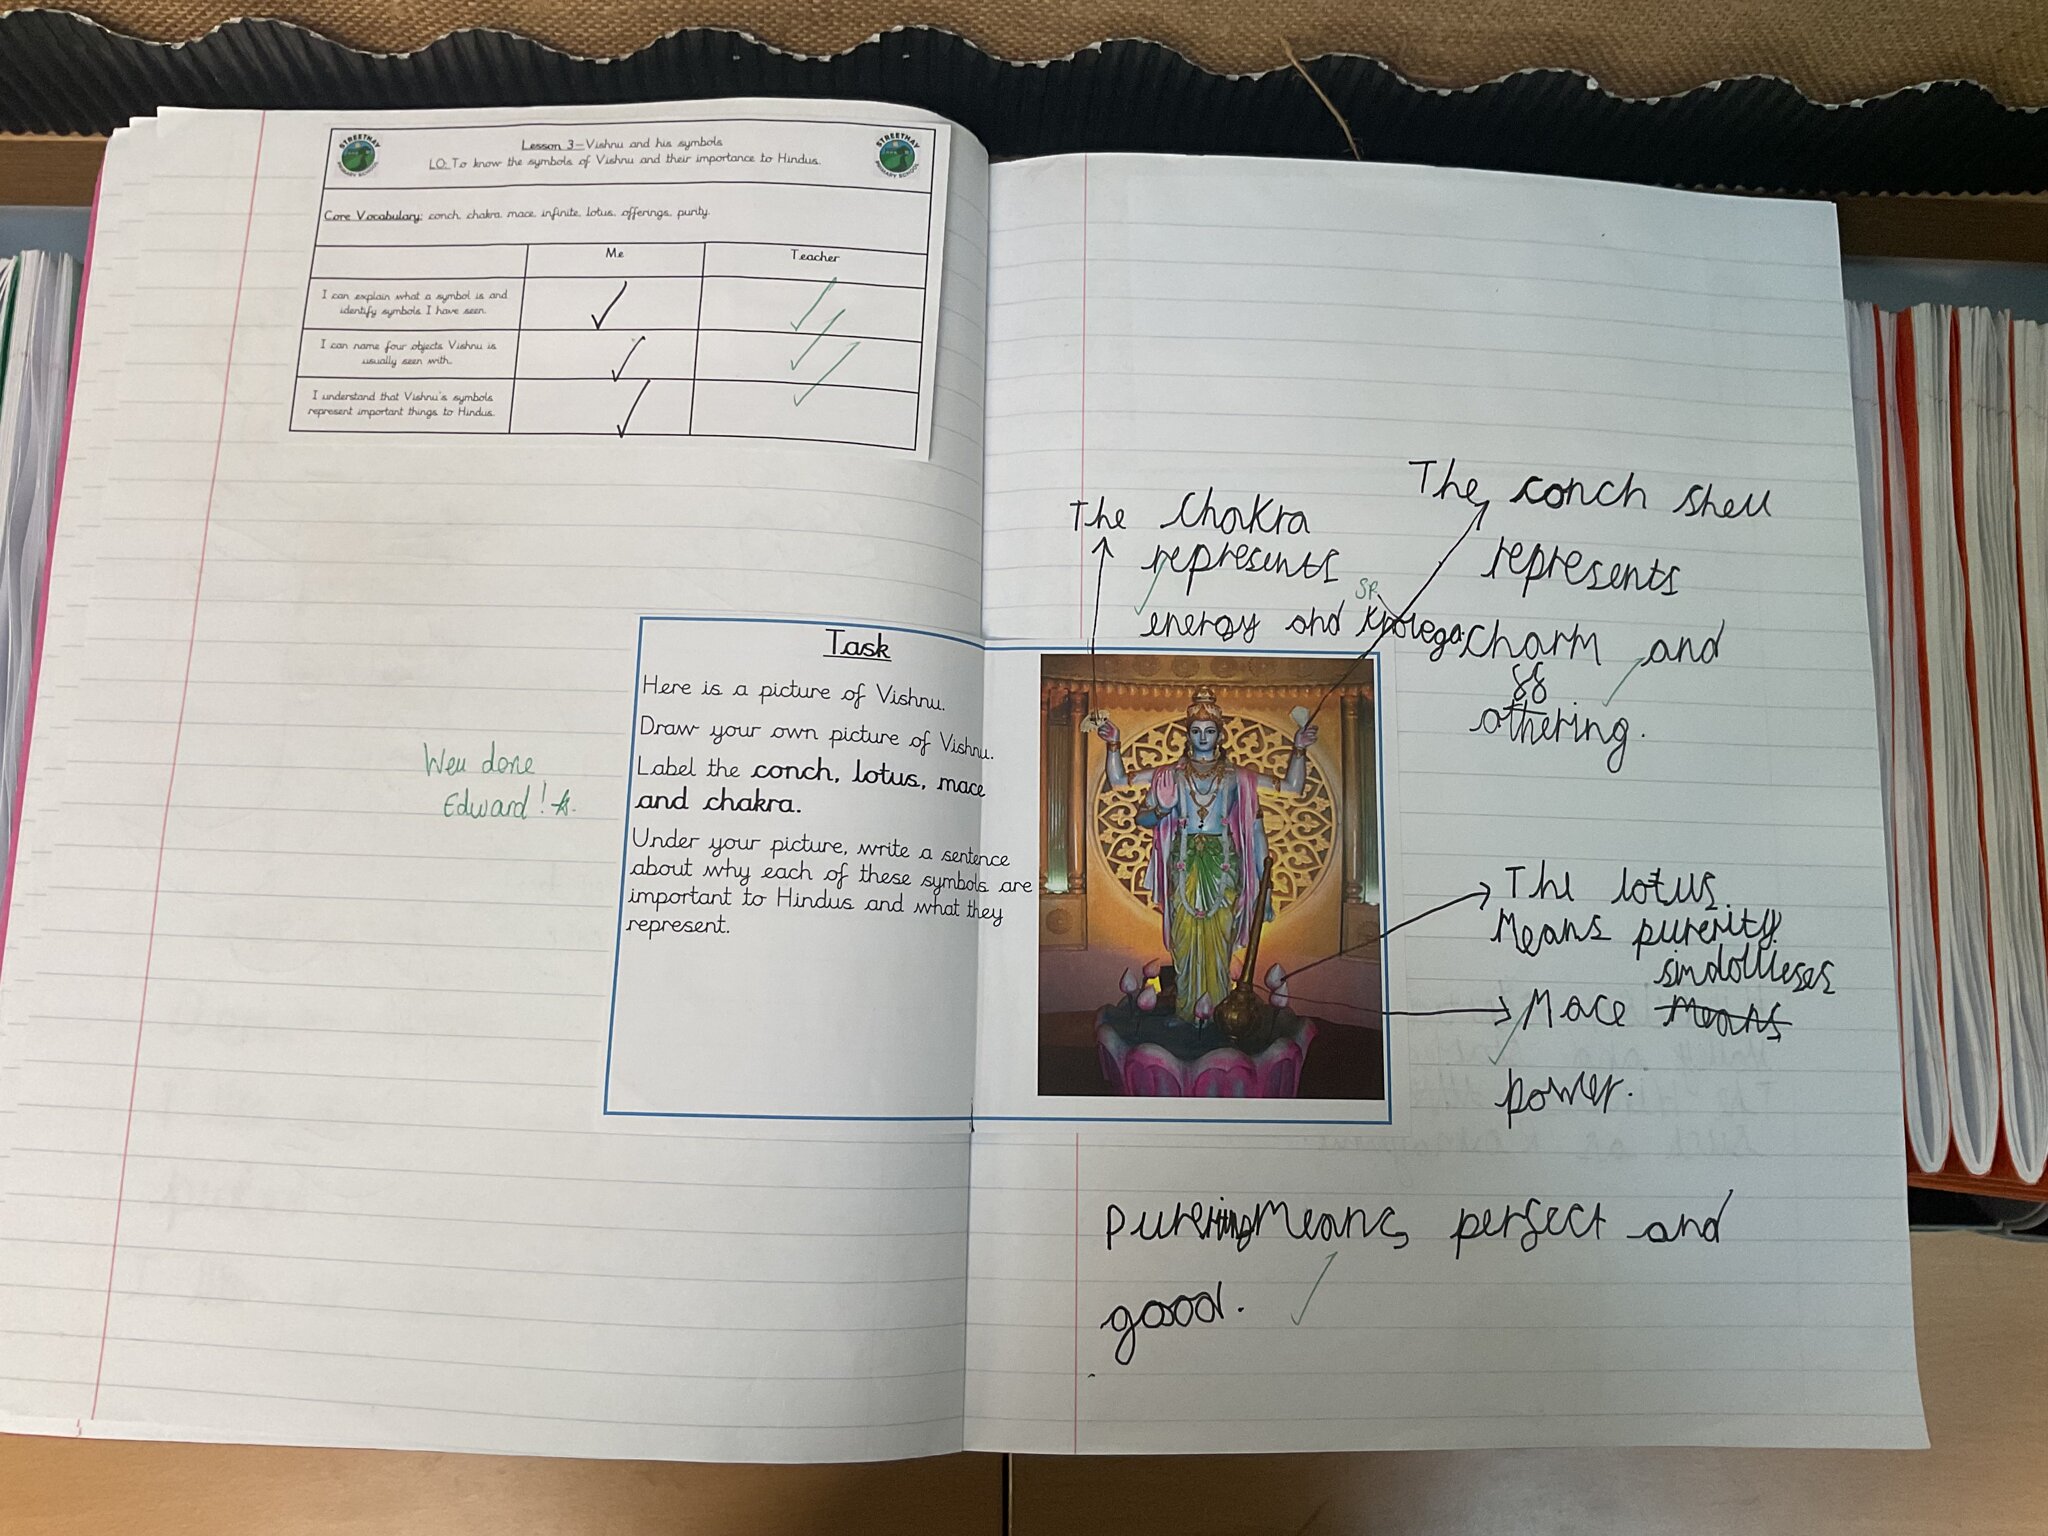 STREETHAY
PRIMARY SCHOOL
Lesson 3-Vishnu and his symbols
LO: To know the symbols of Vishnu and their importance to Hindus.
STREETHAY
PRIMARY SCHOOL
Core Vocabulary: conch, chakra, mace, infinite, lotus, offerings, purity.
Me
Teacher
I can explain what a symbol is and
identify symbols I have seen.
I can name four objects Vishnu is
usually seen with.
I understand that Vishnu's symbols
represent important things to Hindus.
Well done
Edward!
Task
Here is a picture of Vishnu.
Draw your own picture of Vishnu.
Label the conch, lotus, mace
and chakra.
Under your picture, write a sentence
about why each of these symbols are
important to Hindus and what they
represent.
The Chakra
represents
sp.
energy and
The conch shell
represents
Charm and
othering.
The lotus
Means purerity
Mace Means
power.
Means perfect and
good.